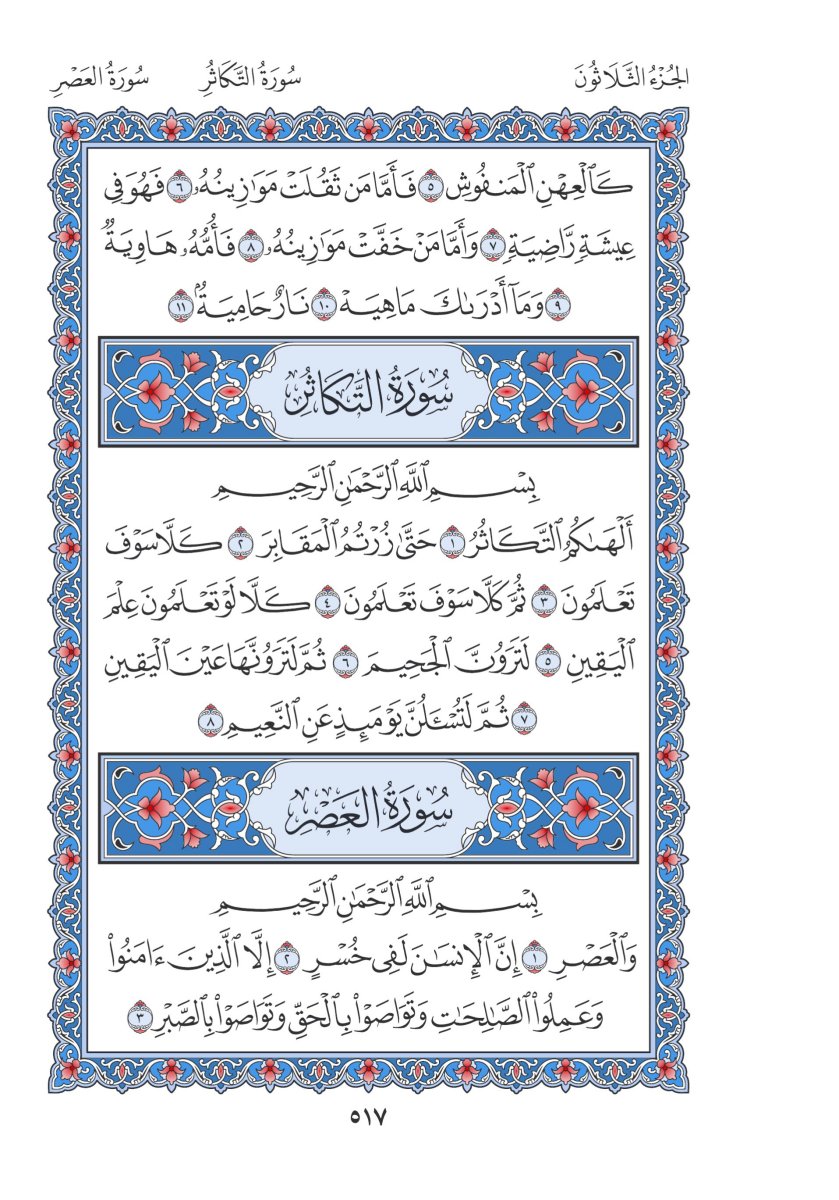 الجُزْءُ الثَّلَاثُونَ سُورَةُ التَّكَاثُرِ سُورَةُ العَصْرِ
كَٱلْعِهْنِ ٱلْمَنفُوشِ ٥ فَأَمَّا مَن ثَقُلَتْ مَوَٰزِينُهُۥ ٦ فَهُوَ فِي
عِيشَةٖ رَّاضِيَةٖ ٧ وَأَمَّا مَنْ خَفَّتْ مَوَٰزِينُهُۥ ٨ فَأُمُّهُۥ هَاوِيَةٞ
٩ وَمَآ أَدْرَىٰكَ مَا هِيَهْ ١٠ نَارٌ حَامِيَةُۢ ١١
سُورَةُ التَّكَاثُرِ
بِسْمِ ٱللَّهِ ٱلرَّحْمَٰنِ ٱلرَّحِيمِ
أَلْهَىٰكُمُ ٱلتَّكَاثُرُ ١ حَتَّىٰ زُرْتُمُ ٱلْمَقَابِرَ ٢ كَلَّا سَوْفَ
تَعْلَمُونَ ٣ ثُمَّ كَلَّا سَوْفَ تَعْلَمُونَ ٤ كَلَّا لَوْ تَعْلَمُونَ عِلْمَ
ٱلْيَقِينِ ٥ لَتَرَوُنَّ ٱلْجَحِيمَ ٦ ثُمَّ لَتَرَوُنَّهَا عَيْنَ ٱلْيَقِينِ
٧ ثُمَّ لَتُسْـَٔلُنَّ يَوْمَئِذٍ عَنِ ٱلنَّعِيمِ ٨
سُورَةُ العَصْرِ
بِسْمِ ٱللَّهِ ٱلرَّحْمَٰنِ ٱلرَّحِيمِ
وَٱلْعَصْرِ ١ إِنَّ ٱلْإِنسَٰنَ لَفِي خُسْرٍ ٢ إِلَّا ٱلَّذِينَ ءَامَنُوا۟
وَعَمِلُوا۟ ٱلصَّٰلِحَٰتِ وَتَوَاصَوْا۟ بِٱلْحَقِّ وَتَوَاصَوْا۟ بِٱلصَّبْرِ ٣
٥١٧